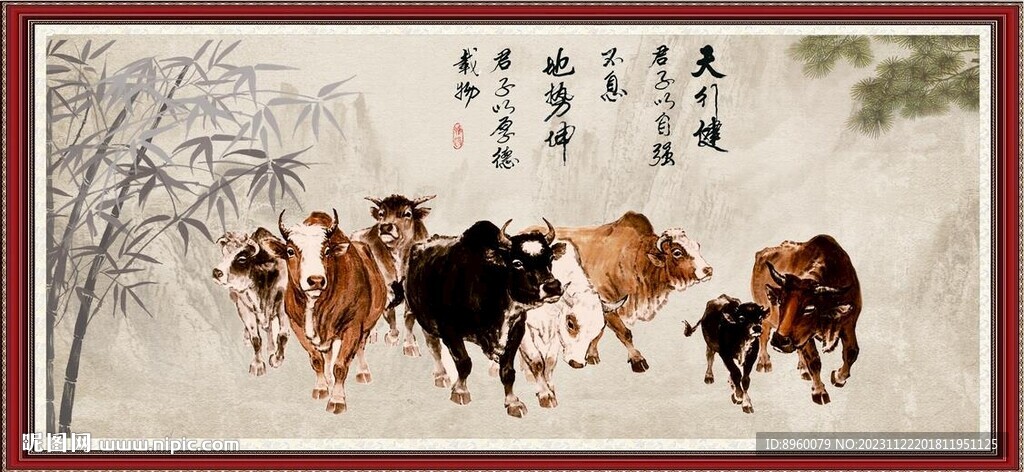 天行健
君子以自强
不息
地势坤
君子以厚德
载物
昵图网 www.nipic.com
ID:8960079 NO:20231122201811951125